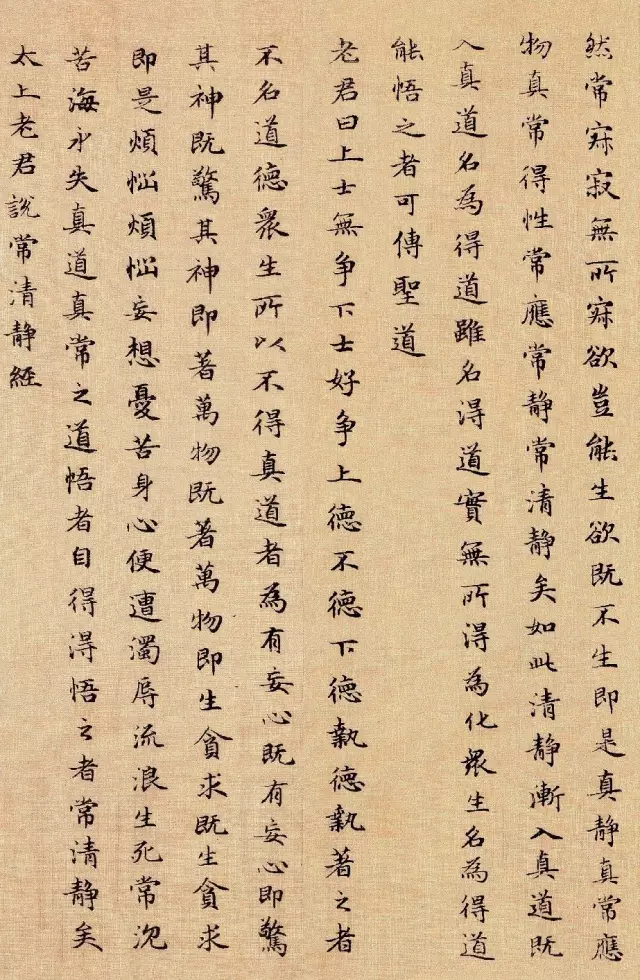 然常寂寂無所寂欲豈能生欲既不生即是真靜真常應
物真常得性常應常靜常清靜矣如此清靜漸入真道既
入真道名為得道雖名得道實無所得為化眾生名為得道
能悟之者可傳聖道
老君曰上士無争下士好争上德不德下德執德執著之者
不名道德眾生所以不得真道者為有妄心既有妄心即驚
其神既驚其神即著萬物既著萬物即生貪求既生貪求
即是煩惱煩惱妄想憂苦身心便遭濁辱流浪生死常沉
苦海永失真道真常之道悟者自得得悟之者常清靜矣
太上老君說常清靜經